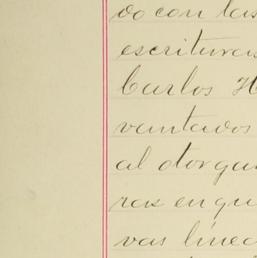 do con las
escrituras
Carlos H
vantados
al otorga
ras en qu
vas línea